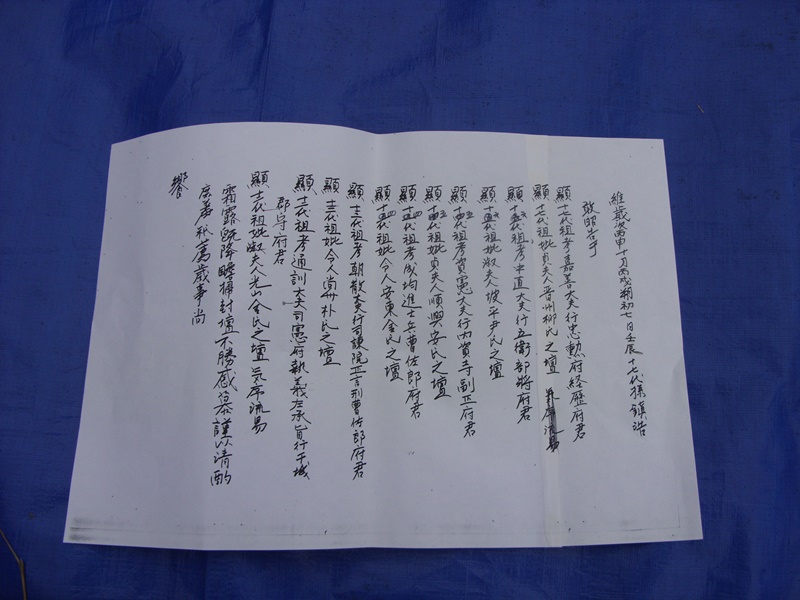 維歲次丙申十月丙戌朔初七日壬辰十七代孫鎭浩
敢昭告于
顯十七代祖考嘉善大夫行忠勳府經歷府君
顯十七代祖妣貞夫人晋州柳氏之壇
顯十六代祖考中直大夫行五衛部將府君
顯十六代祖妣淑夫人坡平尹氏之壇
顯十五代祖考資憲大夫行內資寺副正府君
顯十五代祖妣貞夫人順興安氏之壇
顯十四代祖考成均進士兵曹佐郎府君
顯十四代祖妣令人安東金氏之壇
顯十三代祖考朝散大夫行司諫院正言刑曹佐郎府君
顯十三代祖妣令人尙州朴氏之壇
顯十二代祖考通訓大夫司憲府執義左承旨行干城
郡守府君
顯十二代祖妣淑夫人光山金氏之壇 氣序流易
霜露旣降瞻掃封壇不勝感慕謹以淸酌
庶羞祇薦歲事尙
饗